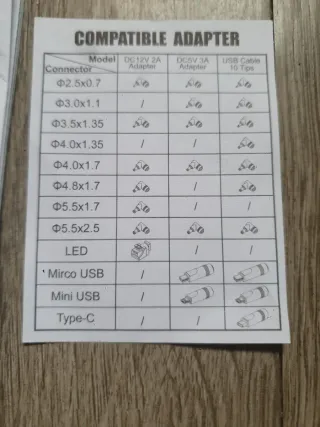 COMPATIBLE ADAPTER
Model DC12V 2A DC5V 3A USB Cable
Connector Adapter Adapter 10 Tips
Φ2.5x0.7
Φ3.0x1.1 /
Φ3.5x1.35
Φ4.0x1.35 / /
Φ4.0x1.7
Φ4.8x1.7 / /
Φ5.5x1.7 / /
Φ5.5x2.5
LED / /
Mirco USB /
Mini USB /
Type-C / /